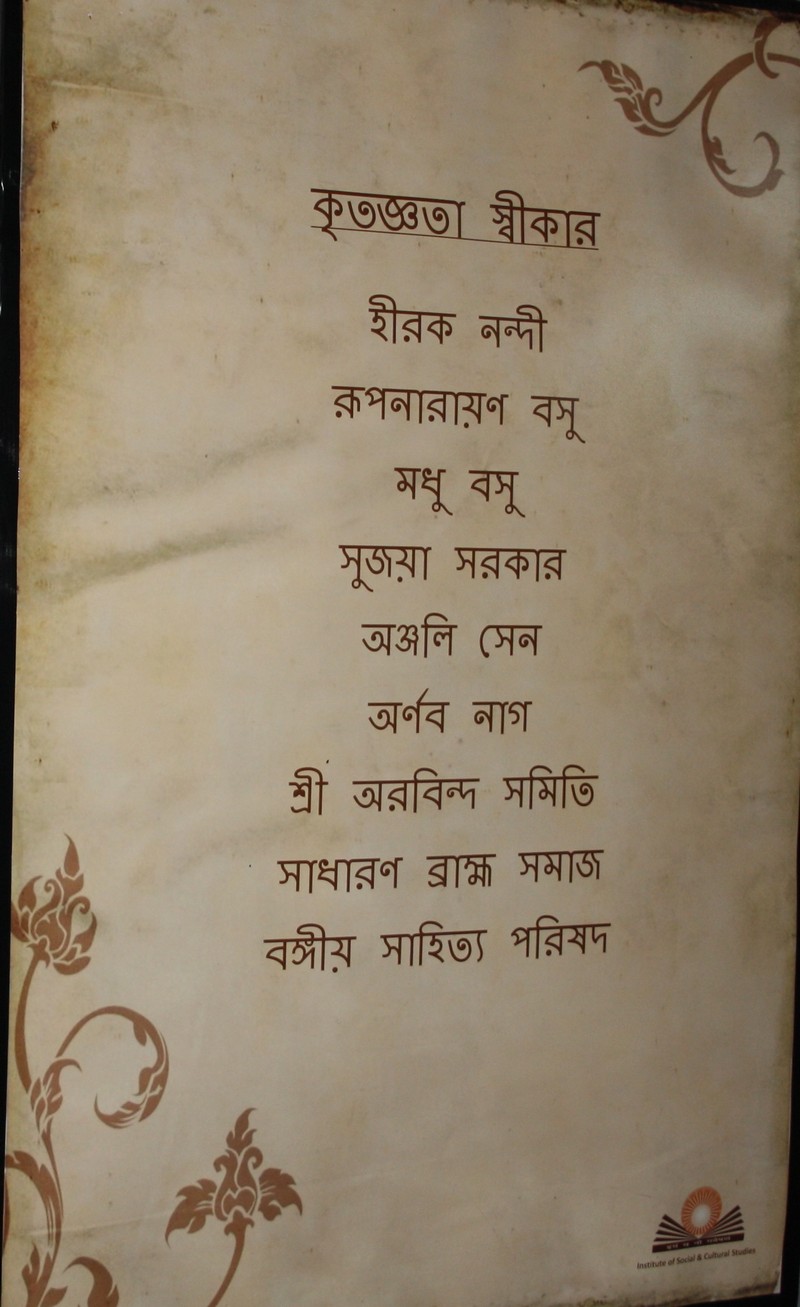 কৃতজ্ঞতা স্বীকার
হীরক নন্দী
রূপনারায়ণ বসু
মধু বসু
সুজয়া সরকার
অঞ্জলি সেন
অর্ণব নাগ
শ্রী অরবিন্দ সমিতি
সাধারণ ব্রাহ্ম সমাজ
বঙ্গীয় সাহিত্য পরিষদ
Institute of Social & Cultural Studies